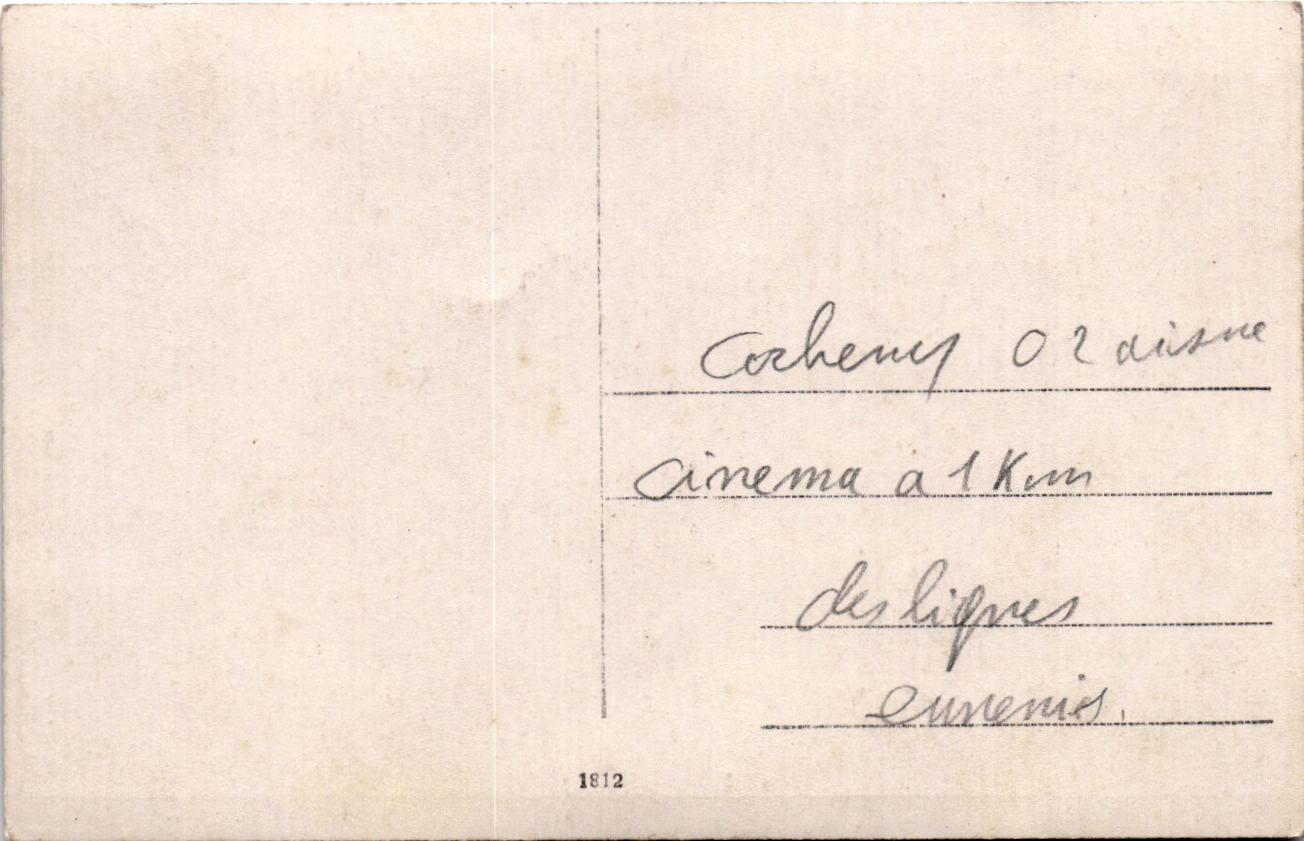 Corbeny 02 aisne
cinema a 1 Km
des lignes
ennemies.
1812